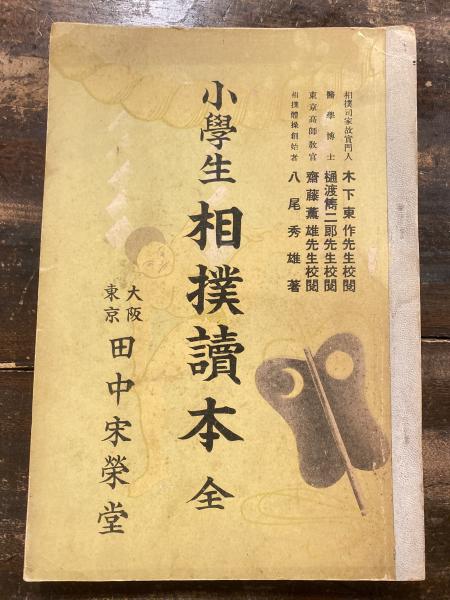 相撲司家故實門人 木下東作先生校閲
醫學博士 樋渡雋二郎先生校閲
東京高師教官 齋藤薫雄先生校閲
相撲體操創始者 八尾秀雄著
小學生 相撲讀本 全
大阪
東京
田中宋榮堂